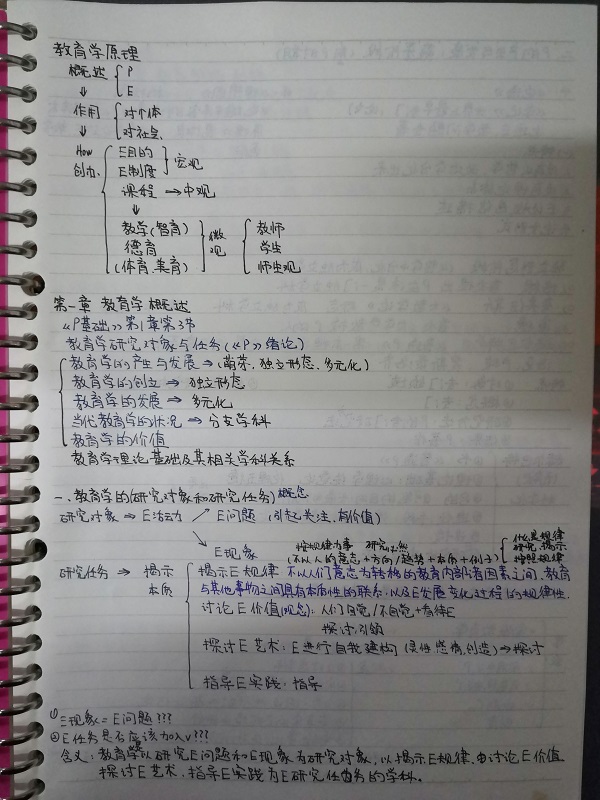 教育学原理
概述 { P
↓ E
作用 { 对个体
↓ 对社会
How { E目的 } 宏观
创办. E制度
课程 → 中观
↓
教学(智育) } 微观 { 教师
德育 学生
(体育.美育) 师生观
第一章 教育学概述
《P基础》第1章第3节
教育学研究对象与任务(《P》绪论)
教育学的产生与发展 → (萌芽.独立形态.多元化)
教育学的创立 ⇒ 独立形态
教育学的发展 ⇒ 多元化
当代教育学的状况 ⇒ 分支学科
教育学的价值
教育学理论基础及其相关学科关系
一.教育学的(研究对象和研究任务)概念
研究对象 ⇒ E活动 ↗ E问题 (引起关注.有价值)
↘ E现象
按规律办事 研究必然
(不以人的意志+方向/趋势+本质+例子) { 什么是规律
揭示
按照规律
研究任务 ⇒ 揭示本质 { 揭示E规律 不以人们意志为转移的教育内部诸因素之间.教育
与其他事物之间具有本质性的联系.以及E发展变化过程的规律性.
讨论E价值(观念):人们自觉/不自觉+看待E
探讨.引领
探讨E艺术:E进行自我建构 (灵性.感情.创造) ⇒ 探讨
指导E实践:指导
① E现象=E问题???
② E任务是否应该加入v???
含义:教育学以研究E问题和E现象为研究对象.以揭示E规律.由讨论E价值
探讨E艺术.指导E实践为E研究任务的学科.